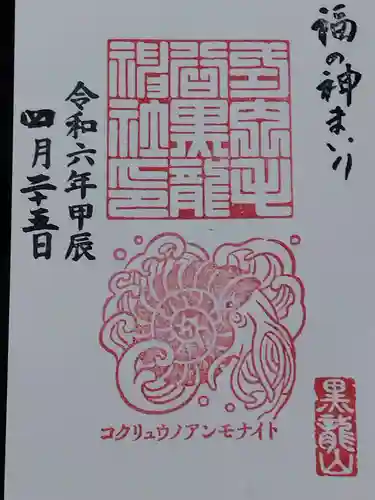 福の神まいり
令和六年甲辰
四月二十五日
コクリュウノアンモナイト
黒龍山